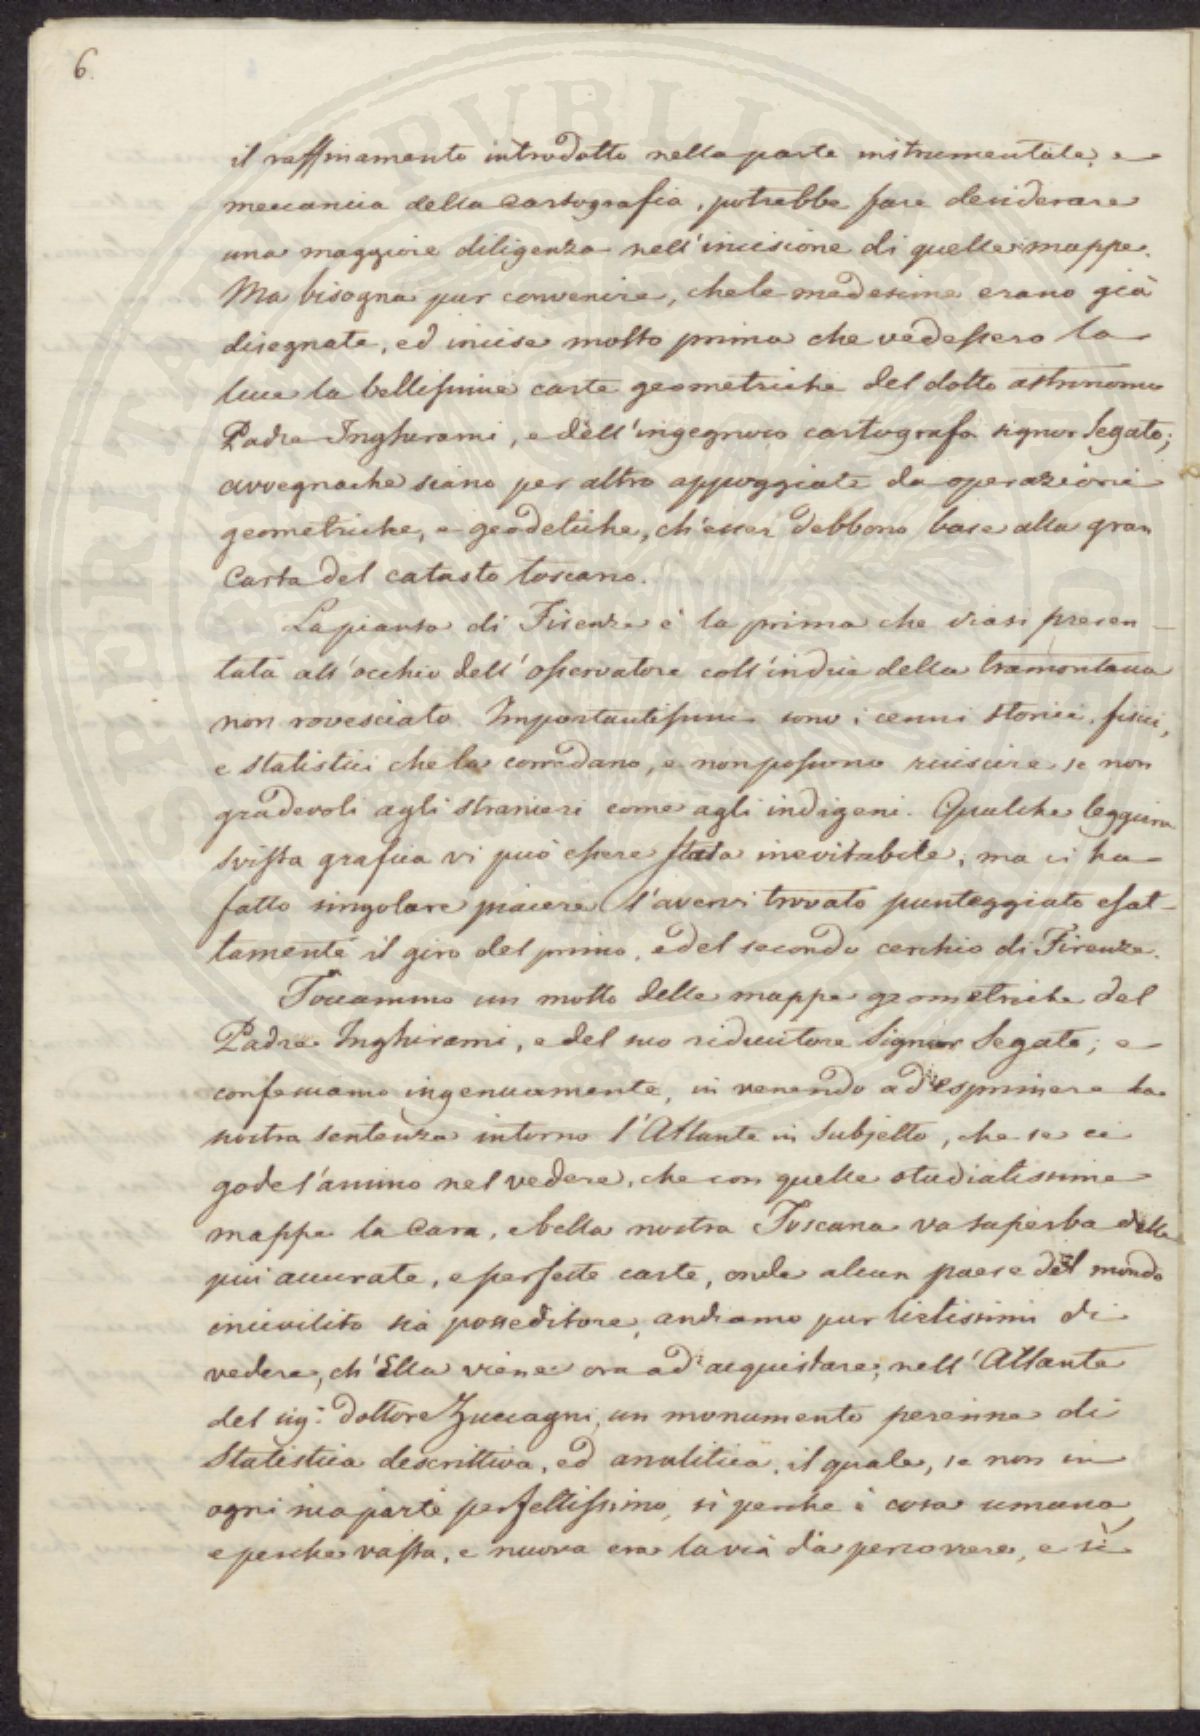 6.
il raffinamento introdotto nella parte instrumentale, e
meccanica della cartografia, potrebbe fare desiderare
una maggiore diligenza nell'incisione di quelle mappe.
Ma bisogna pur convenire, che le medesime erano già
disegnate, ed incise molto prima che vedessero la
luce le bellissime carte geometriche del dotto astronomo
Padre Inghirami, e dell'ingegnoso cartografo signor Segato;
avvegnache siano per altro appoggiate da operazioni
geometriche, e geodetiche, ch'esser debbono base alla gran
Carta del catasto toscano.
La pianta di Firenze è la prima che siasi presen-
tata all'occhio dell'osservatore coll'indice della tramontana
non rovesciato. Importantissimi sono i cenni storici, fisici,
e statistici che la corredano, e non possono riuscire se non
gradevoli agli stranieri come agli indigeni. Qualche leggiera
svista grafica vi può essere stata inevitabile, ma ci ha
fatto singolare piacere l'avervi trovato punteggiato esat-
tamente il giro del primo, e del secondo cerchio di Firenze.
Toccammo un motto delle mappe geometriche del
Padre Inghirami, e del suo riduttore Signor Segato; e
confessiamo ingenuamente, in venendo ad esprimere la
nostra sentenza intorno l'Atlante in subjetto, che se ci
gode l'animo nel vedere, che con quelle studiatissime
mappe la cara, e bella nostra Toscana va superba delle
più accurate, e perfette carte, onde alcun paese del mondo
incivilito sia posseditore, andiamo pur lietissimi di
vedere, ch'Ella viene ora ad acquistare, nell'Atlante
del sig: dottore Zuccagni, un monumento perenne di
Statistica descrittiva, ed analitica, il quale, se non in
ogni sua parte perfettissimo, sì perche è cosa umana,
e perche vasta, e nuova era la via da percorrere, e sì